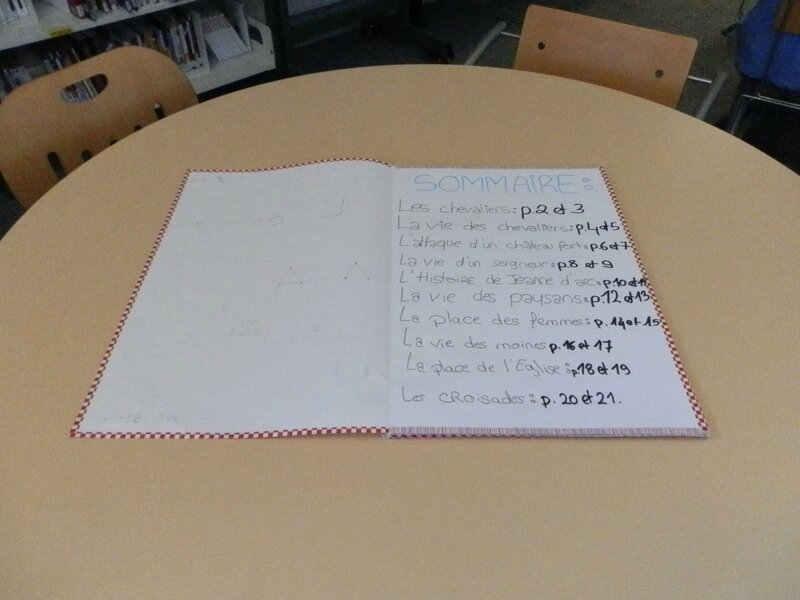 SOMMAIRE:
Les chevaliers: p.2 et 3
La vie des chevaliers: p.4 et 5
L'attaque d'un château fort: p.6 et 7
La vie d'un seigneur: p.8 et 9
L'Histoire de Jeanne d'arc: p.10 et 11
La vie des paysans: p.12 et 13
La place des femmes: p.14 et 15
La vie des moines p.16 et 17
La place de l'Eglise: p18 et 19
Les CROisades: p.20 et 21.